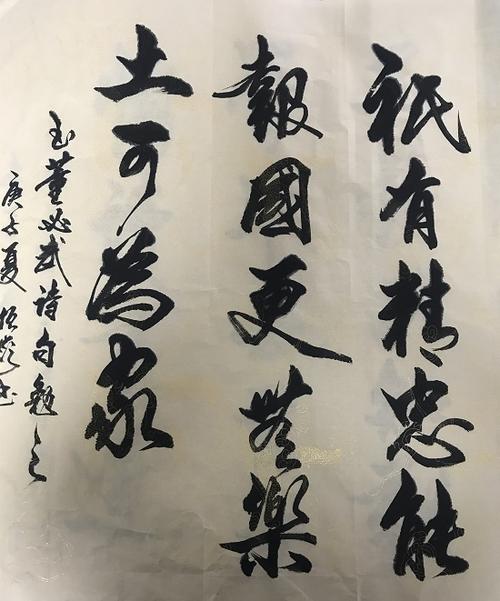 祇有精忠能
報國更無樂
土可為家
录董必武诗句勉之
庚子夏书